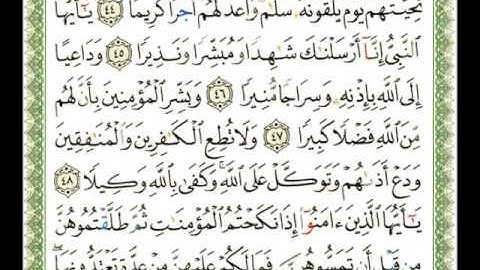 تَحِيَّتُهُمْ يَوْمَ يَلْقَوْنَهُۥ سَلَٰمٌ وَأَعَدَّ لَهُمْ أَجْرًا كَرِيمًا ﴿٤٤﴾ يَٰٓأَيُّهَا
ٱلنَّبِىُّ إِنَّآ أَرْسَلْنَٰكَ شَٰهِدًا وَمُبَشِّرًا وَنَذِيرًا ﴿٤٥﴾ وَدَاعِيًا
إِلَى ٱللَّهِ بِإِذْنِهِۦ وَسِرَاجًا مُّنِيرًا ﴿٤٦﴾ وَبَشِّرِ ٱلْمُؤْمِنِينَ بِأَنَّ لَهُم
مِّنَ ٱللَّهِ فَضْلًا كَبِيرًا ﴿٤٧﴾ وَلَا تُطِعِ ٱلْكَٰفِرِينَ وَٱلْمُنَٰفِقِينَ
وَدَعْ أَذَىٰهُمْ وَتَوَكَّلْ عَلَى ٱللَّهِ ۚ وَكَفَىٰ بِٱللَّهِ وَكِيلًا ﴿٤٨﴾
يَٰٓأَيُّهَا ٱلَّذِينَ ءَامَنُوٓا۟ إِذَا نَكَحْتُمُ ٱلْمُؤْمِنَٰتِ ثُمَّ طَلَّقْتُمُوهُنَّ
مِن قَبْلِ أَن تَمَسُّوهُنَّ فَمَا لَكُمْ عَلَيْهِنَّ مِنْ عِدَّةٍ تَعْتَدُّونَهَا ۖ